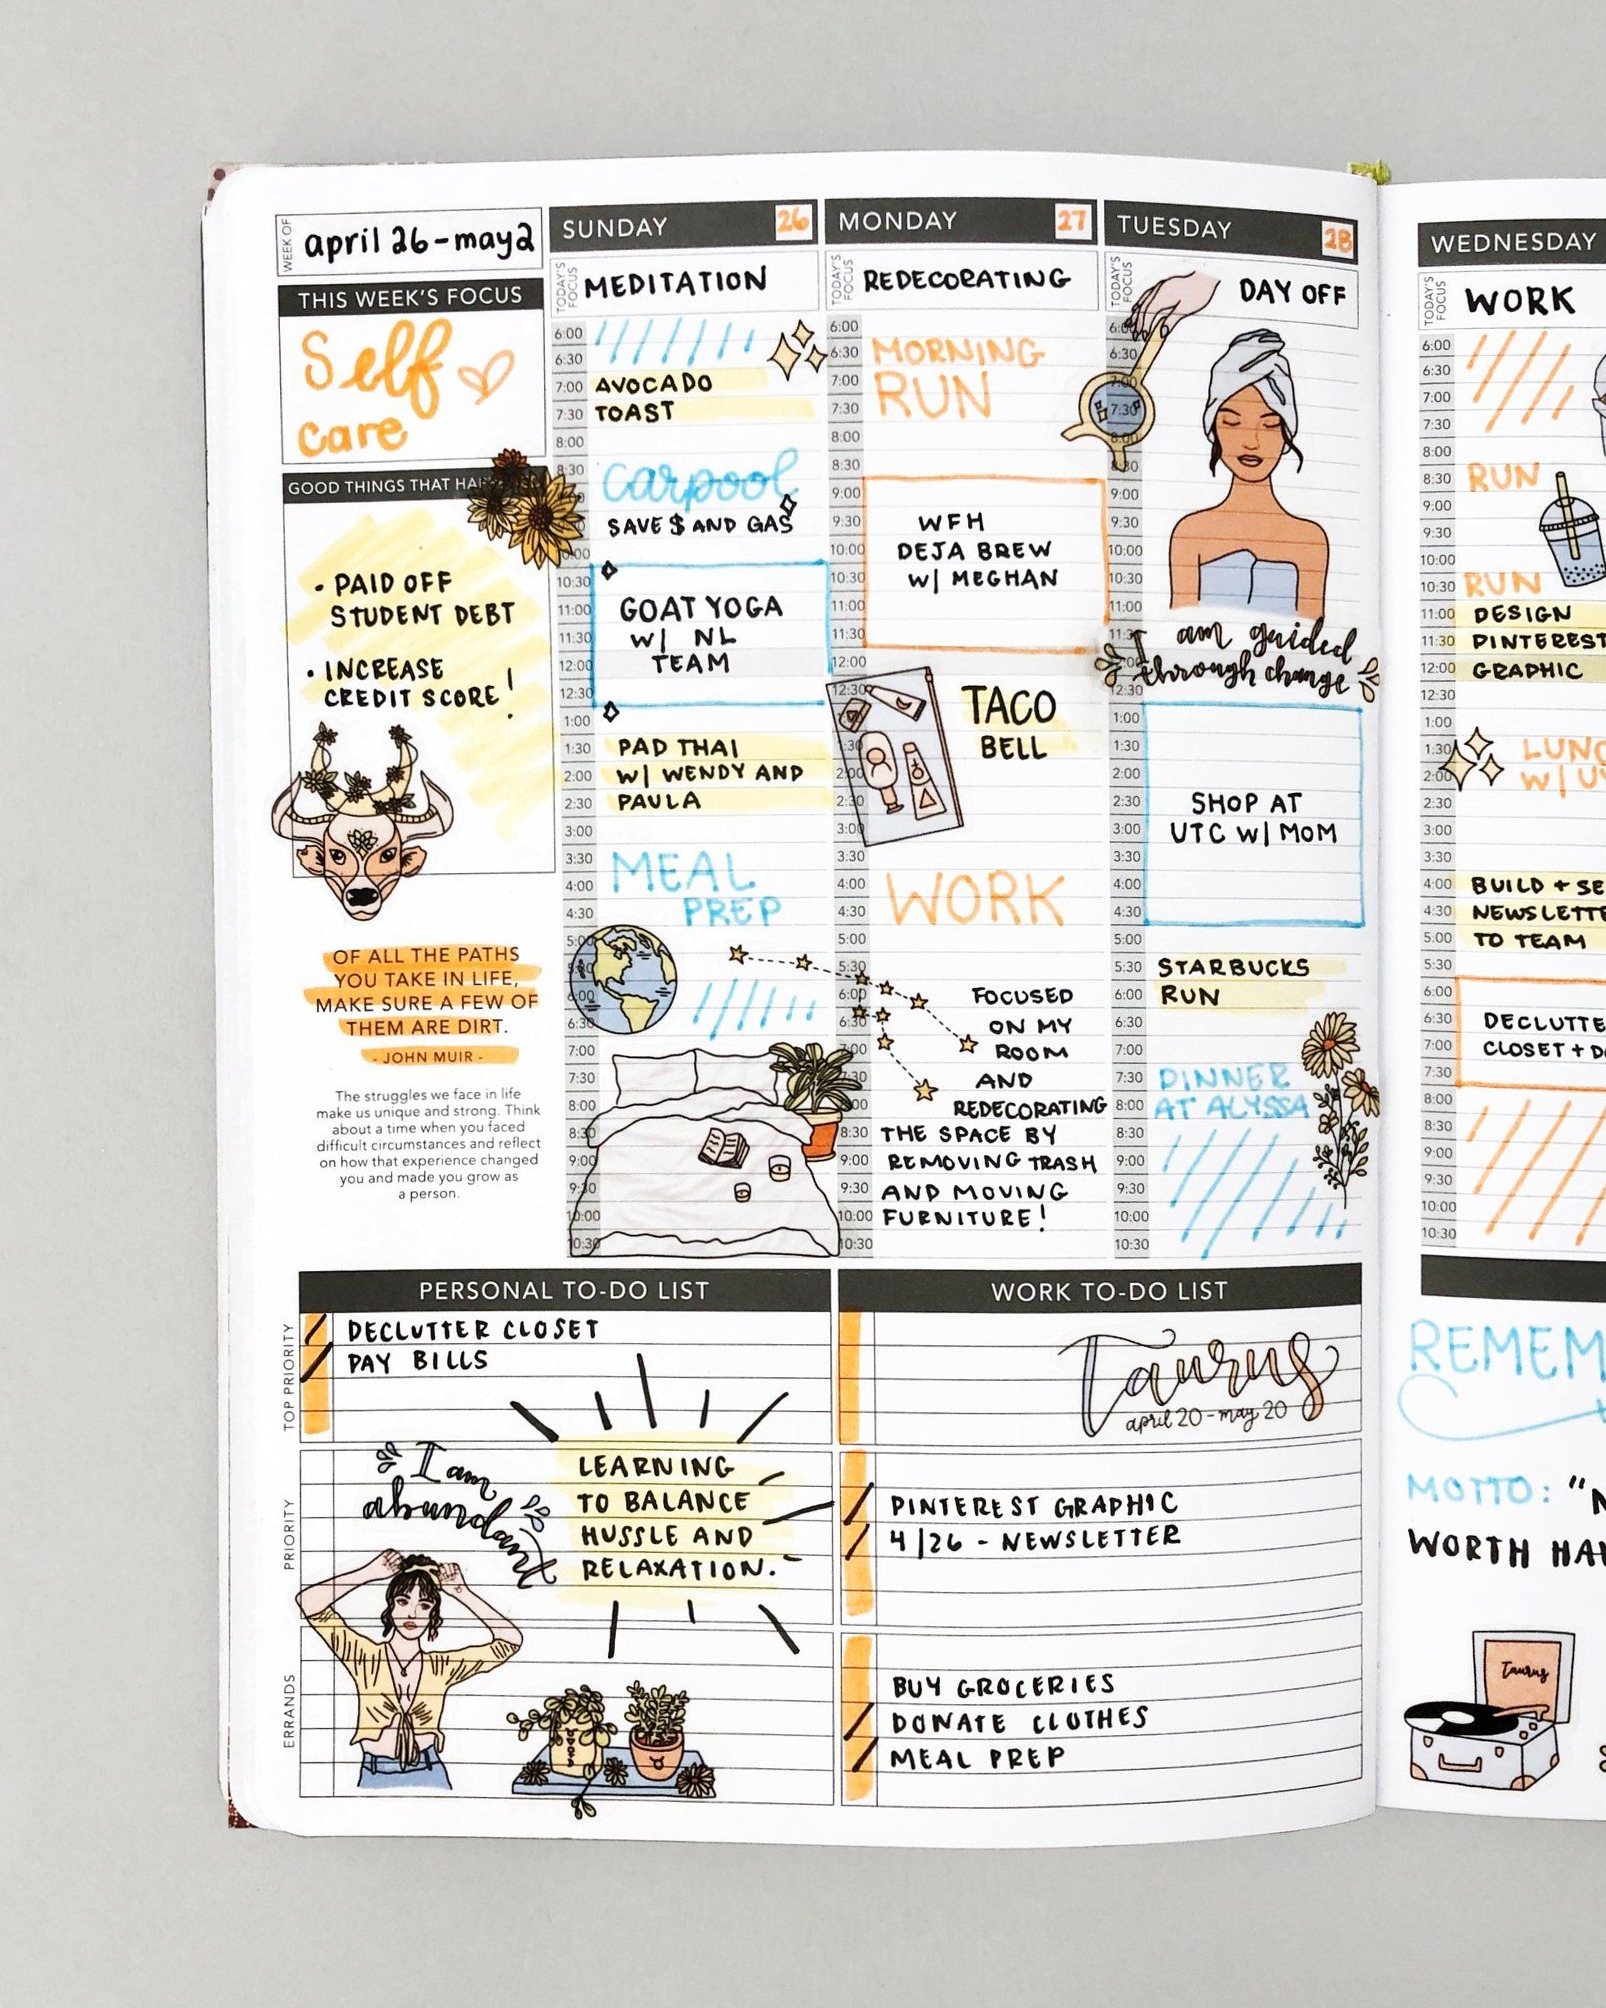 WEEK OF
april 26 - may 2
THIS WEEK'S FOCUS
Self
care
GOOD THINGS THAT
• PAID OFF
STUDENT DEBT
• INCREASE
CREDIT SCORE!
OF ALL THE PATHS
YOU TAKE IN LIFE,
MAKE SURE A FEW OF
THEM ARE DIRT.
- JOHN MUIR -
The struggles we face in life
make us unique and strong. Think
about a time when you faced
difficult circumstances and reflect
on how that experience changed
you and made you grow as
a person.
SUNDAY 26
TODAY'S FOCUS
MEDITATION
6:00
6:30
7:00 AVOCADO
7:30 TOAST
8:00
8:30 carpool
SAVE $ AND GAS
10:00
10:30
11:00 GOAT YOGA
11:30 W/ NL
12:00 TEAM
12:30
1:00
1:30 PAD THAI
2:00 W/ WENDY AND
2:30 PAULA
3:00
3:30
4:00 MEAL
4:30 PREP
5:00
5:30
6:00
6:30
7:00
7:30
8:00
8:30
9:00
9:30
10:00
10:30
MONDAY 27
TODAY'S FOCUS
REDECORATING
6:00
6:30 MORNING
7:00 RUN
7:30
8:00
8:30
9:00
9:30 WFH
10:00 DEJA BREW
10:30 W/ MEGHAN
11:00
11:30
12:00
12:30 TACO
1:30 BELL
2:00
2:30
3:00
3:30
4:00 WORK
4:30
5:00
5:30
6:00 FOCUSED
6:30 ON MY
7:00 ROOM
7:30 AND
8:00 REDECORATING
8:30 THE SPACE BY
9:00 REMOVING TRASH
9:30 AND MOVING
10:00 FURNITURE!
10:30
TUESDAY 28
TODAY'S FOCUS
DAY OFF
6:00
6:30
7:00
7:30
8:00
8:30
9:00
9:30
10:00
10:30
11:00
11:30 I am guided
through change
12:30
1:00
1:30
2:00
2:30 SHOP AT
3:00 UTC W/ MOM
3:30
4:00
4:30
5:00
5:30 STARBUCKS
6:00 RUN
6:30
7:00
7:30 DINNER
8:00 AT ALYSSA
8:30
9:00
9:30
10:00
10:30
WEDNESDAY
TODAY'S FOCUS
WORK
6:00
6:30
7:00
7:30
8:00
8:30 RUN
9:00
9:30
10:00
10:30 RUN
11:00 DESIGN
11:30 PINTEREST
12:00 GRAPHIC
12:30
1:00
1:30
2:00 W/
2:30
3:00
3:30
4:00 BUILD +
4:30
5:00 TO TEAM
5:30
6:00
6:30
7:00 CLOSET +
7:30
8:00
8:30
9:00
9:30
10:00
10:30
PERSONAL TO-DO LIST
TOP PRIORITY
DECLUTTER CLOSET
PAY BILLS
PRIORITY
I am
abundant
LEARNING
TO BALANCE
HUSSLE AND
RELAXATION.
ERRANDS
WORK TO-DO LIST
Taurus
april 20 - may 20
PINTEREST GRAPHIC
4/26 - NEWSLETTER
BUY GROCERIES
DONATE CLOTHES
MEAL PREP
MOTTO: "
WORTH
Taurus